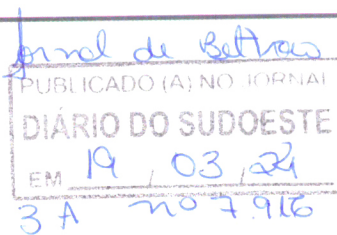 Jornal de Beltrão
PUBLICADO (A) NO JORNAL
DIÁRIO DO SUDOESTE
EM 19 / 03 / 24
3 A nº 7.916